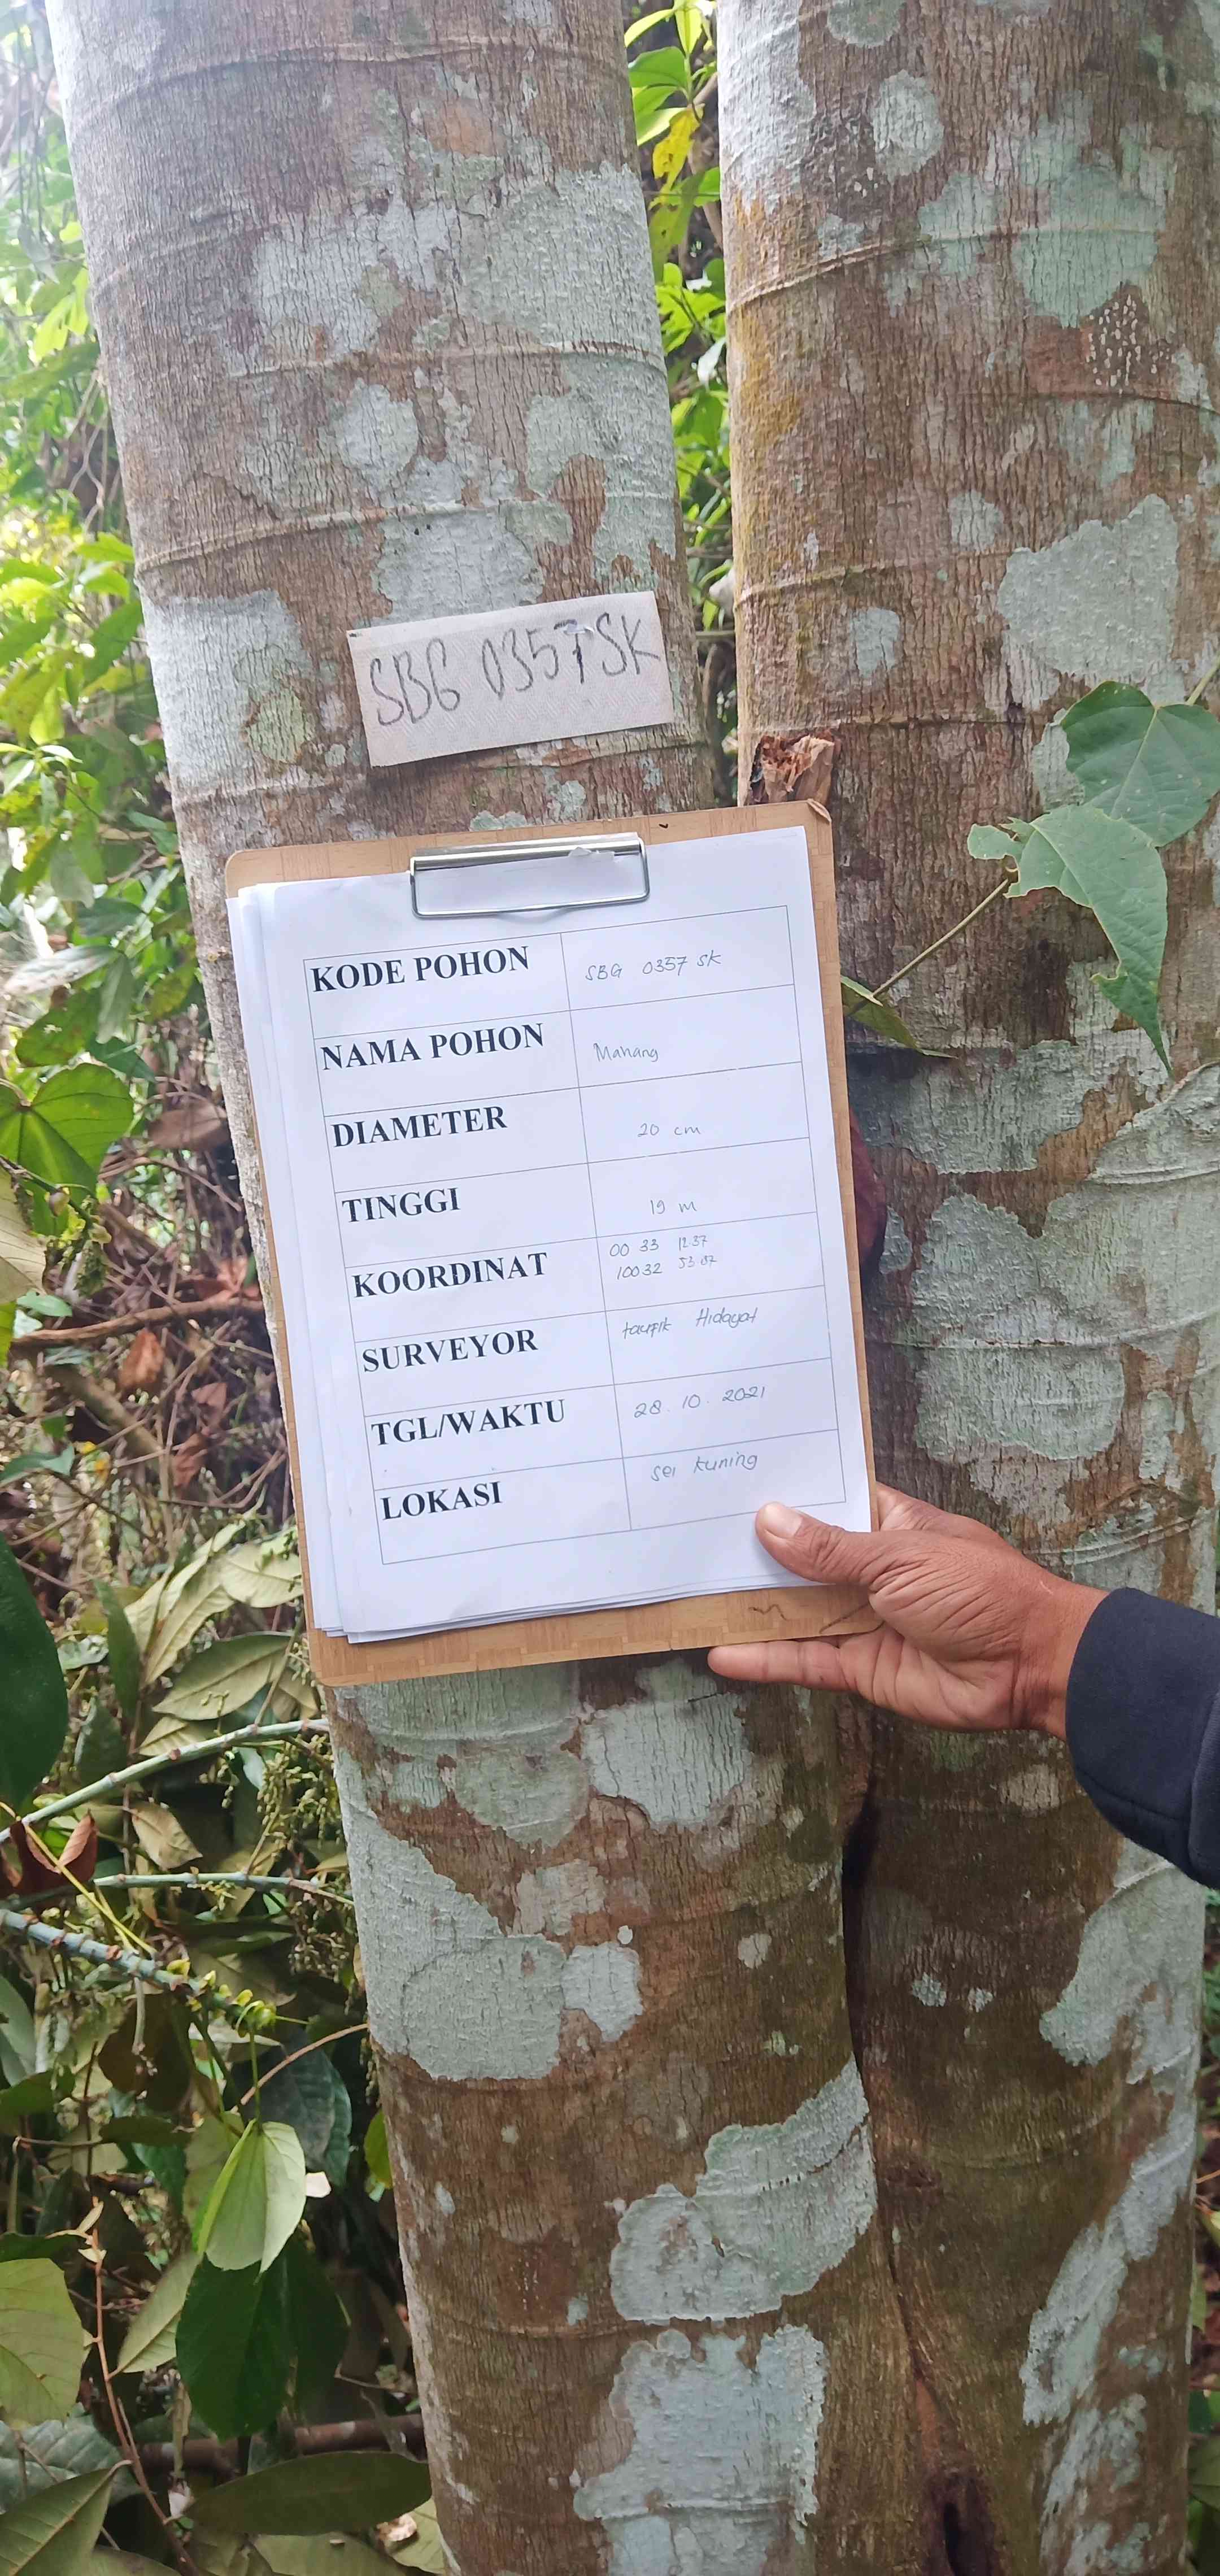 SBG 0357 SK
KODE POHON SBG 0357 SK
NAMA POHON Mahang
DIAMETER 20 cm
TINGGI 19 m
KOORDINAT 00 33 12.37
100 32 53.87
SURVEYOR taufik Hidayat
TGL/WAKTU 28.10.2021
LOKASI sei kuning